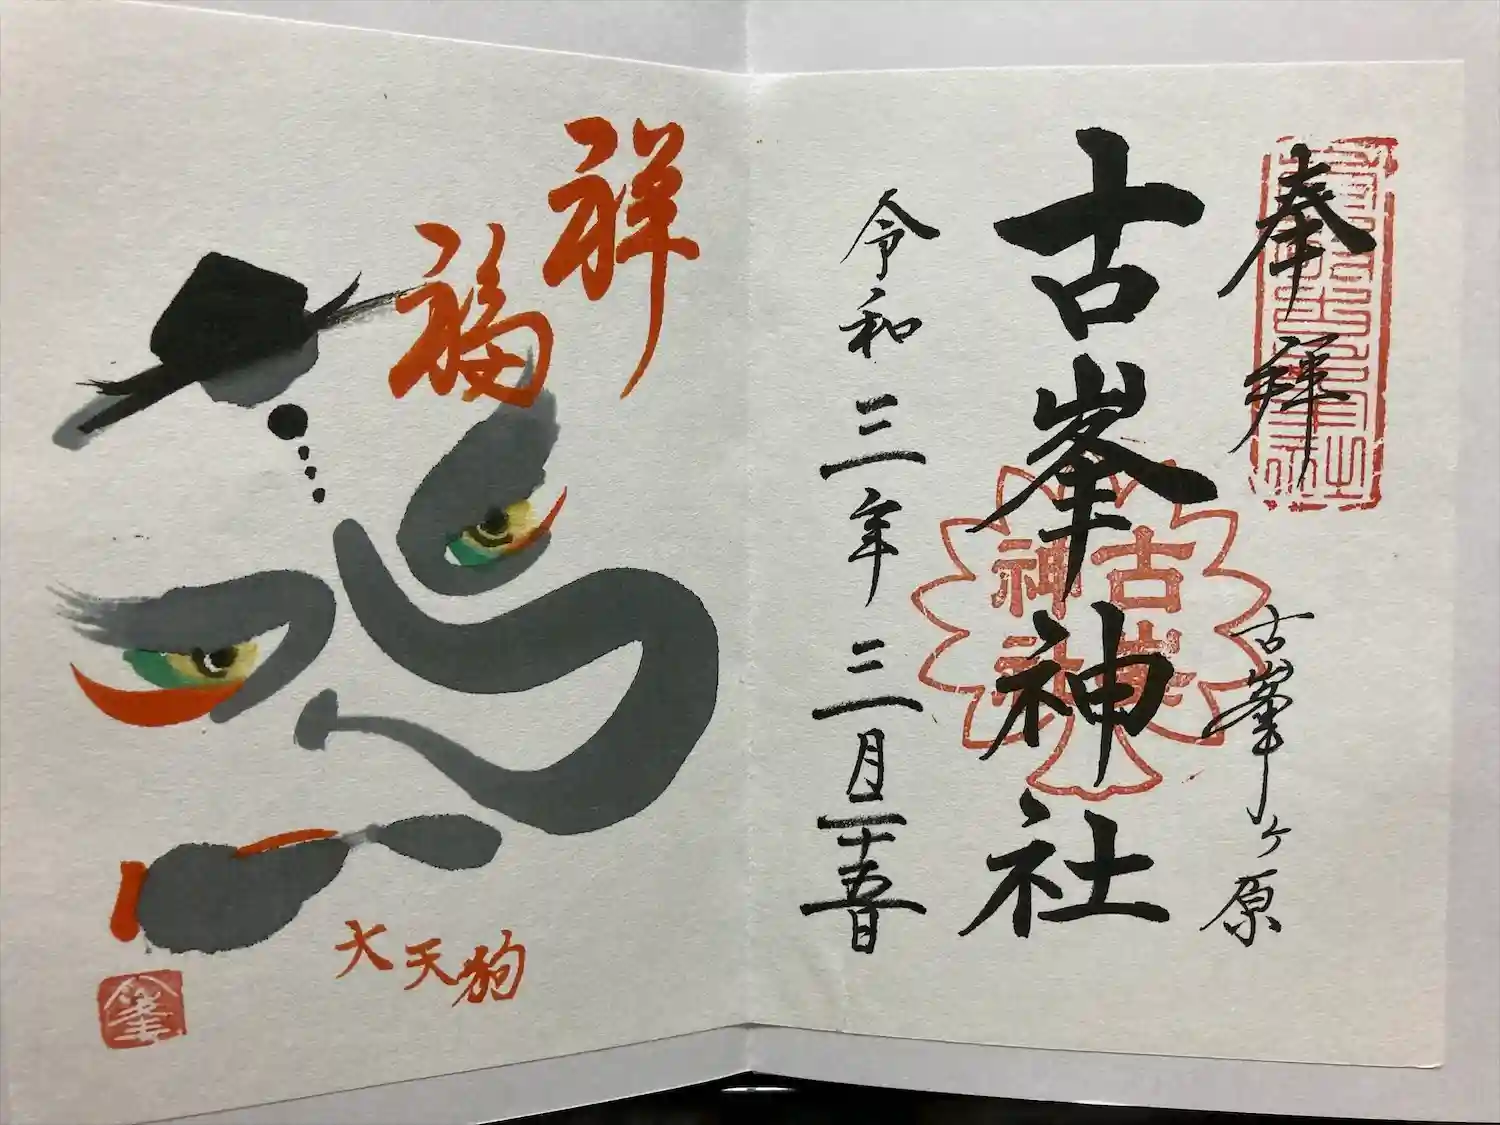 奉拝
古峯ヶ原
古峯神社
古峯神社
令和三年三月二十五日
祥福
大天狗
峯